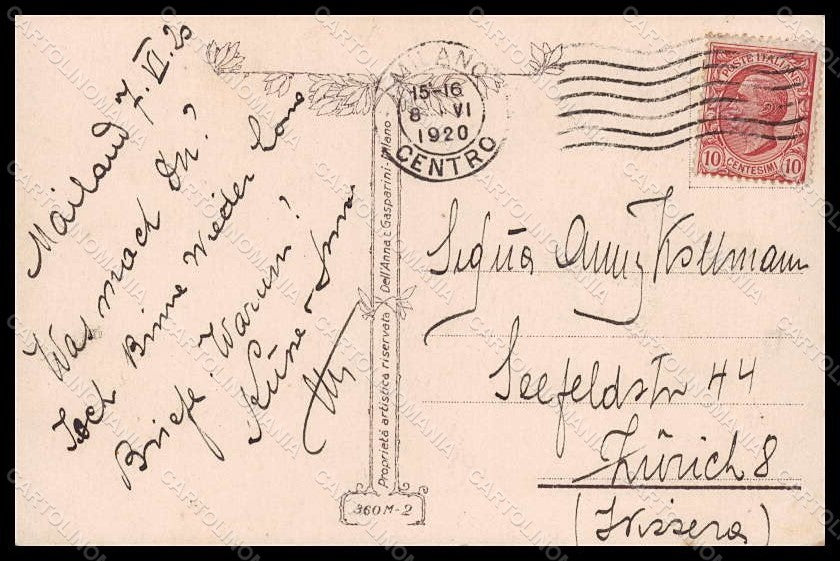 Mailand 7. VI. 20
Was mach Du?
Ich Binne Wieder
Briefe. Warum?
Küsse
MILANO
15-16
8 VI
1920
CENTRO
POSTE ITALIANE
10 CENTESIMI 10
Proprietà artistica riservata Dell'Anna & Gasparini - Milano -
360M-2
Sigña Anny Kollmann
Seefeldstr 44
Zürich 8
(Svissera)
CARTOLINOMANIA